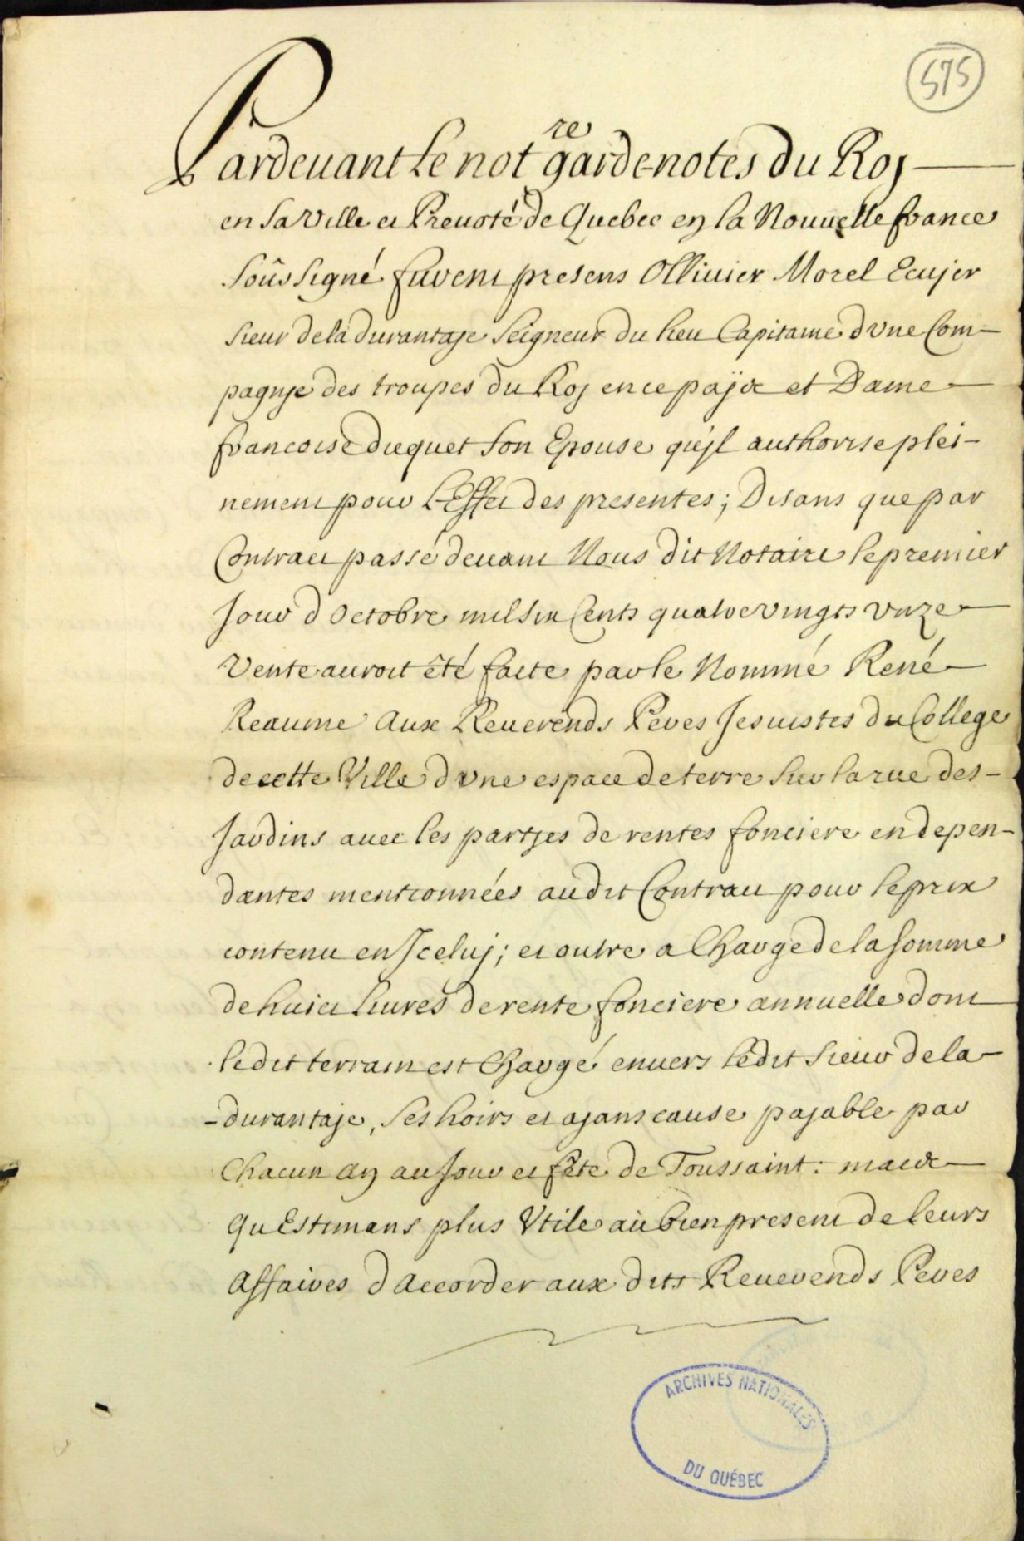 575
Pardeuant Le notre gardenotes du Roy
en sa Ville et Preuosté de Quebec en la Nouuelle france
soûssigné furent presens Ollivier Morel Ecuyer
sieur de la durantaye seigneur du lieu Capitaine d'une Com-
pagnye des troupes du Roy en ce payïs et Dame
francoise duquet son Epouse qu'jl authorise plei-
nement pour L'Effet des presentes; Disans que par
Contract passé deuant Nous dit Notaire le premier
Jour d'octobre mil six Cents quatre vingts vnze
Vente auroit été faite par le Nommé René
Reaume Aux Reuerends Peres Jesuistes du College
de cette Ville d'vne espace de terre sur la rue des-
Jardins auec les partyes de rentes fonciere en depen-
dantes mentionnées au dit Contract pour le prix
contenu en Jceluy; et outre a Charge de la somme
de huict liures de rente fonciere annuelle dont
le dit terrain est Chargé enuers le dit sieur de la-
-durantaye, ses hoirs et ayans cause payable par
Chacun an au Jour et fête de Toussaint: mais
Qu'Estimans plus Vtile au bien present de leurs
Affaires d'accorder aux dits Reuerends Peres
ARCHIVES NATIONALES
DU QUÉBEC